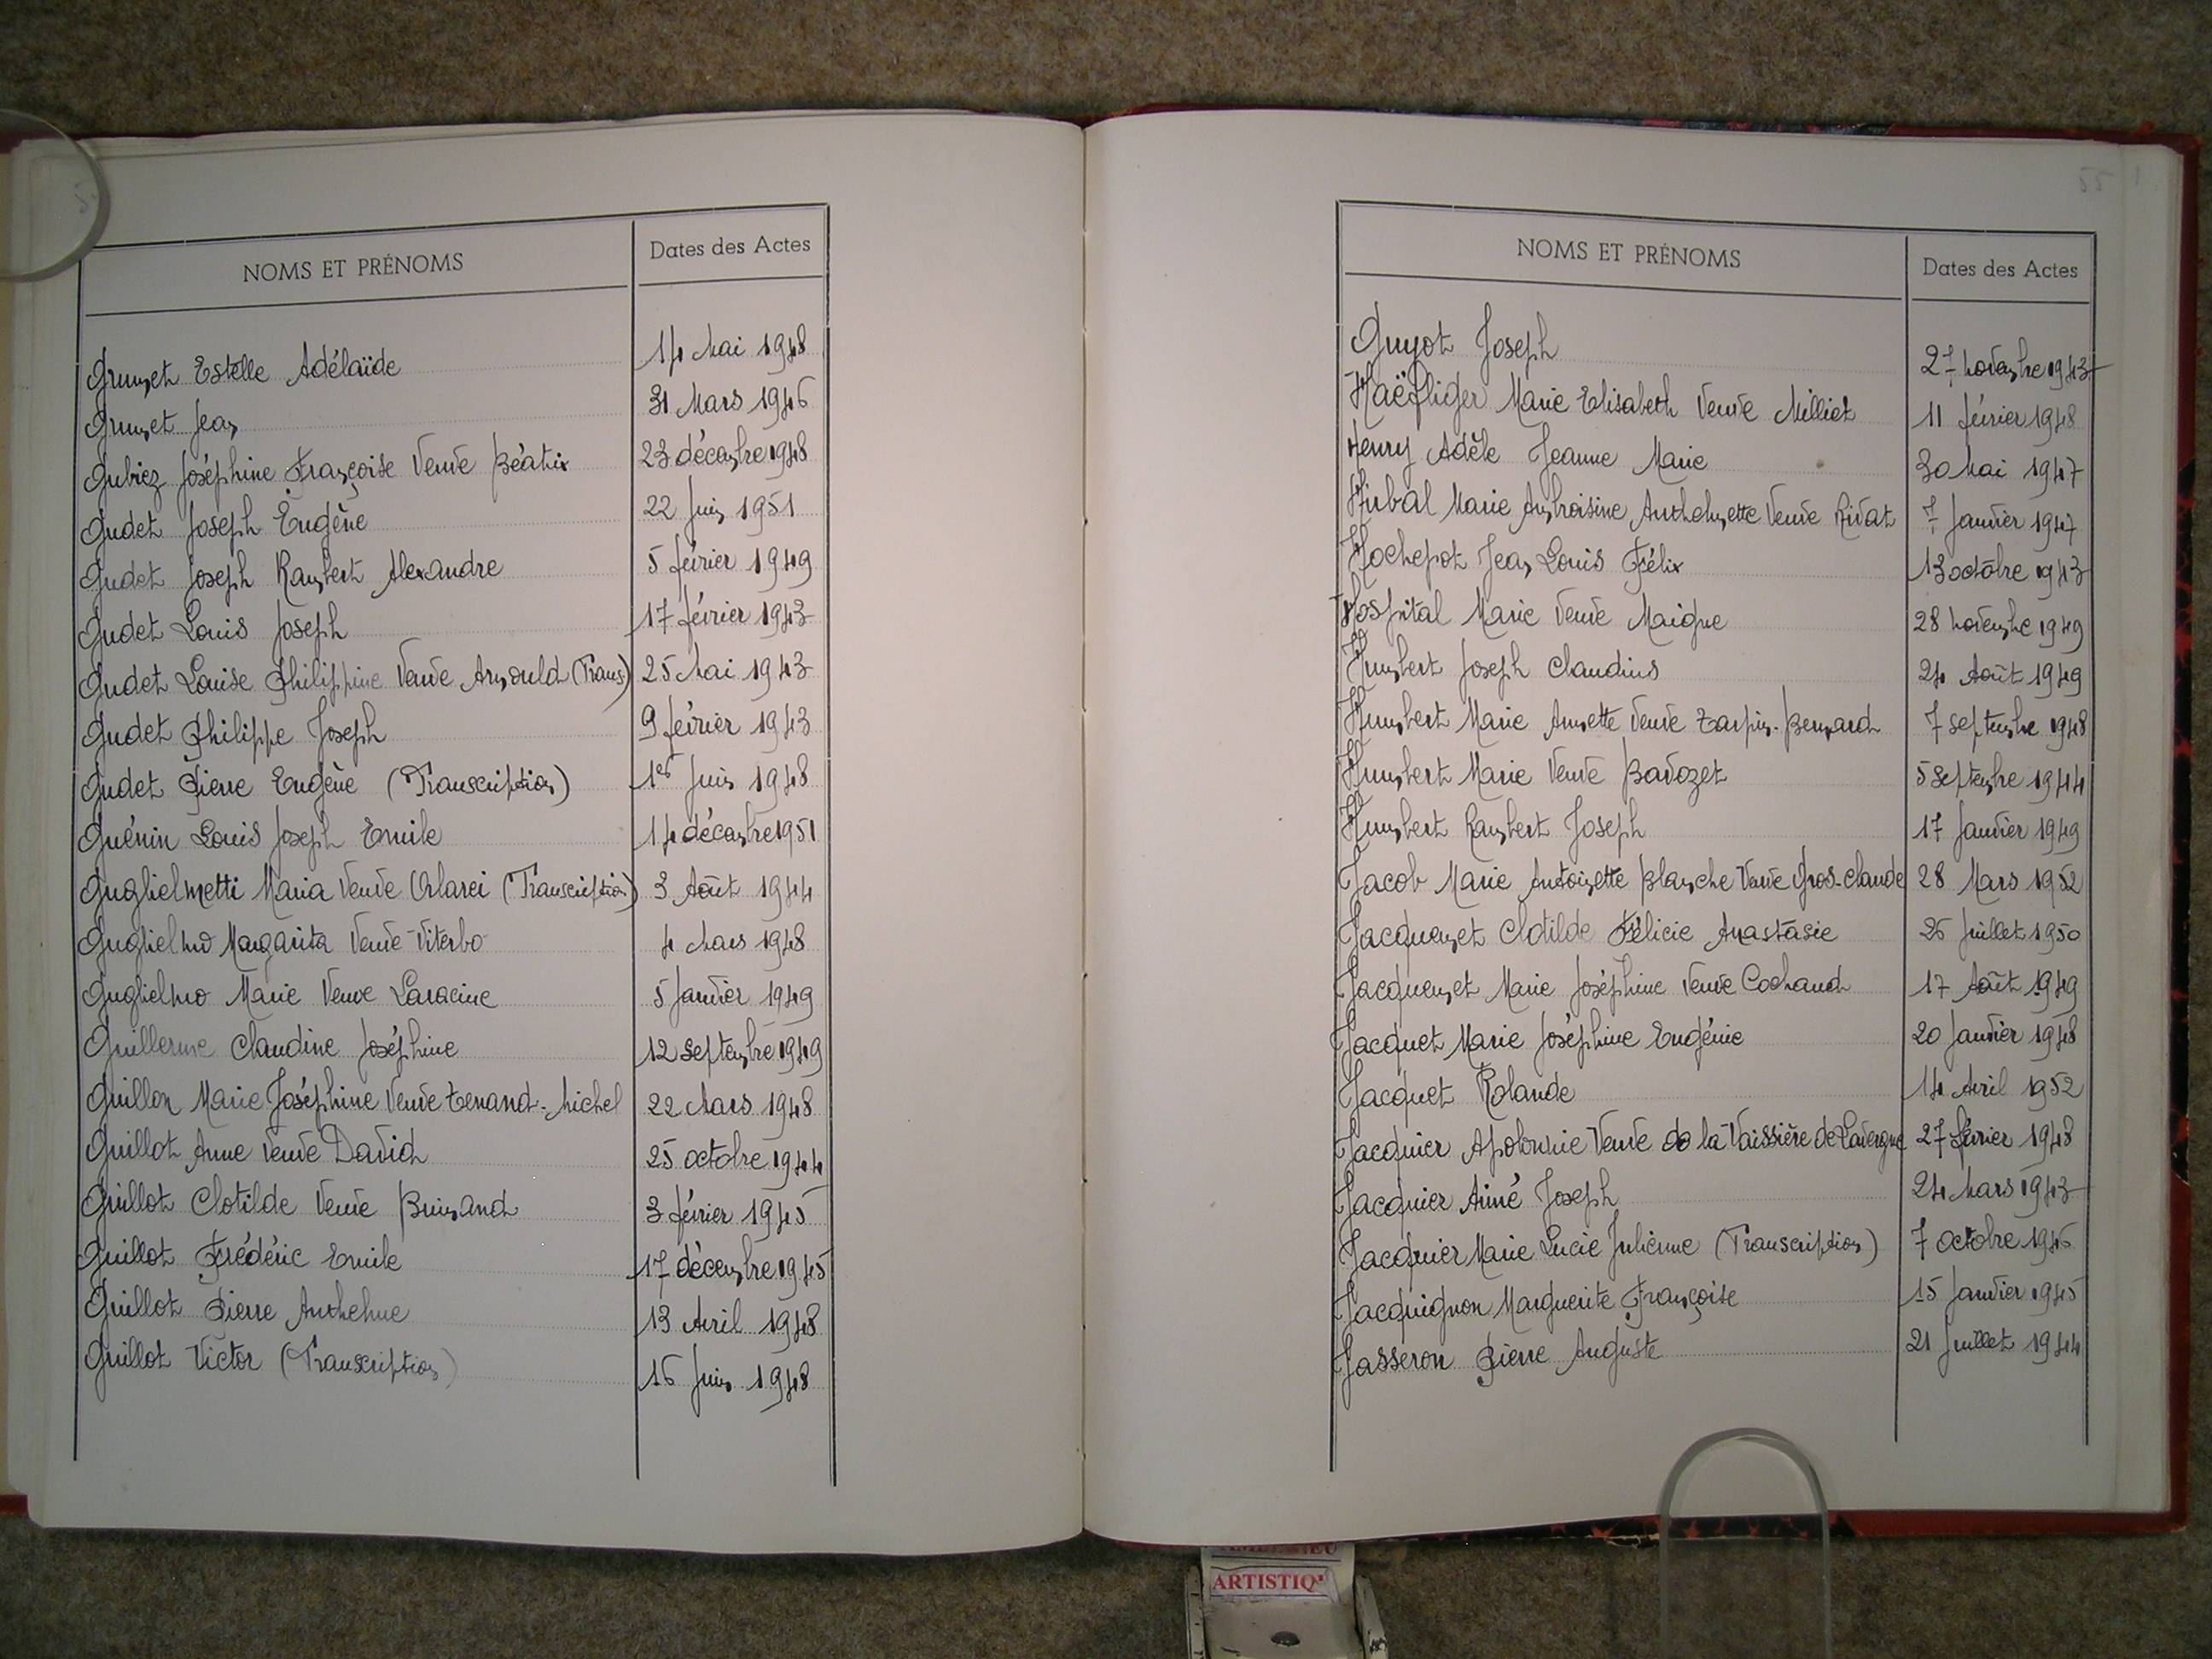 NOMS ET PRÉNOMS Dates des Actes
Grumet Estelle Adélaïde 14 Mai 1948
Grumet Jean 31 Mars 1946
Gubiez Joséphine Françoise Veuve Béatrix 23 décembre 1948
Gudet Joseph Eugène 22 Juin 1951
Gudet Joseph Rambert Alexandre 5 février 1949
Gudet Louis Joseph 17 février 1943
Gudet Louise Philippine Veuve Arnould (Trans.) 25 Mai 1943
Gudet Philippe Joseph 9 février 1943
Gudet Pierre Eugène (Transcription) 1er Juin 1948
Guénin Louis Joseph Emile 14 décembre 1951
Guglielmetti Maria Veuve Orlarei (Transcription) 3 Août 1944
Guglielmo Margarita Veuve Viterbo 4 Mars 1948
Guglielmo Marie Veuve Laracine 5 Janvier 1949
Guillerme Claudine Joséphine 12 septembre 1949
Guillon Marie Joséphine Veuve Tenand-Michel 22 Mars 1948
Guillot Anne Veuve David 25 octobre 1944
Guillot Clotilde Veuve Buinand 3 février 1945
Guillot Frédéric Emile 17 décembre 1945
Guillot Pierre Anthelme 13 Avril 1948
Guillot Victor (Transcription) 16 Juin 1948
NOMS ET PRÉNOMS Dates des Actes
Guyot Joseph 27 novembre 1943
Haëfliger Marie Elisabeth Veuve Milliet 11 février 1948
Henry Adèle Jeanne Marie 30 Mai 1947
Hubal Marie Ambroisine Anthelmette Veuve Rivat 7 Janvier 1947
Hochepot Jean Louis Félix 13 octobre 1943
Hospital Marie Veuve Maigre 28 novembre 1949
Humbert Joseph Claudius 24 Août 1949
Humbert Marie Annette Veuve Tarpin-Bernard 7 septembre 1948
Humbert Marie Veuve Bavozet 5 septembre 1944
Humbert Rambert Joseph 17 Janvier 1949
Jacob Marie Antoinette Blanche Veuve Gros-Claude 28 Mars 1952
Jacquemet Clotilde Félicie Anastasie 26 Juillet 1950
Jacquemet Marie Joséphine Veuve Cochand 17 Août 1949
Jacquet Marie Joséphine Eugénie 20 Janvier 1948
Jacquet Rolande 14 Avril 1952
Jacquier Apolonnie Veuve de la Vaissière de Lavergne 27 février 1948
Jacquier Aimé Joseph 24 Mars 1943
Jacquier Marie Lucie Julienne (Transcription) 7 octobre 1946
Jacquignon Marguerite Françoise 15 Janvier 1945
Jasseron Pierre Auguste 21 Juillet 1944
ARTISTIQ